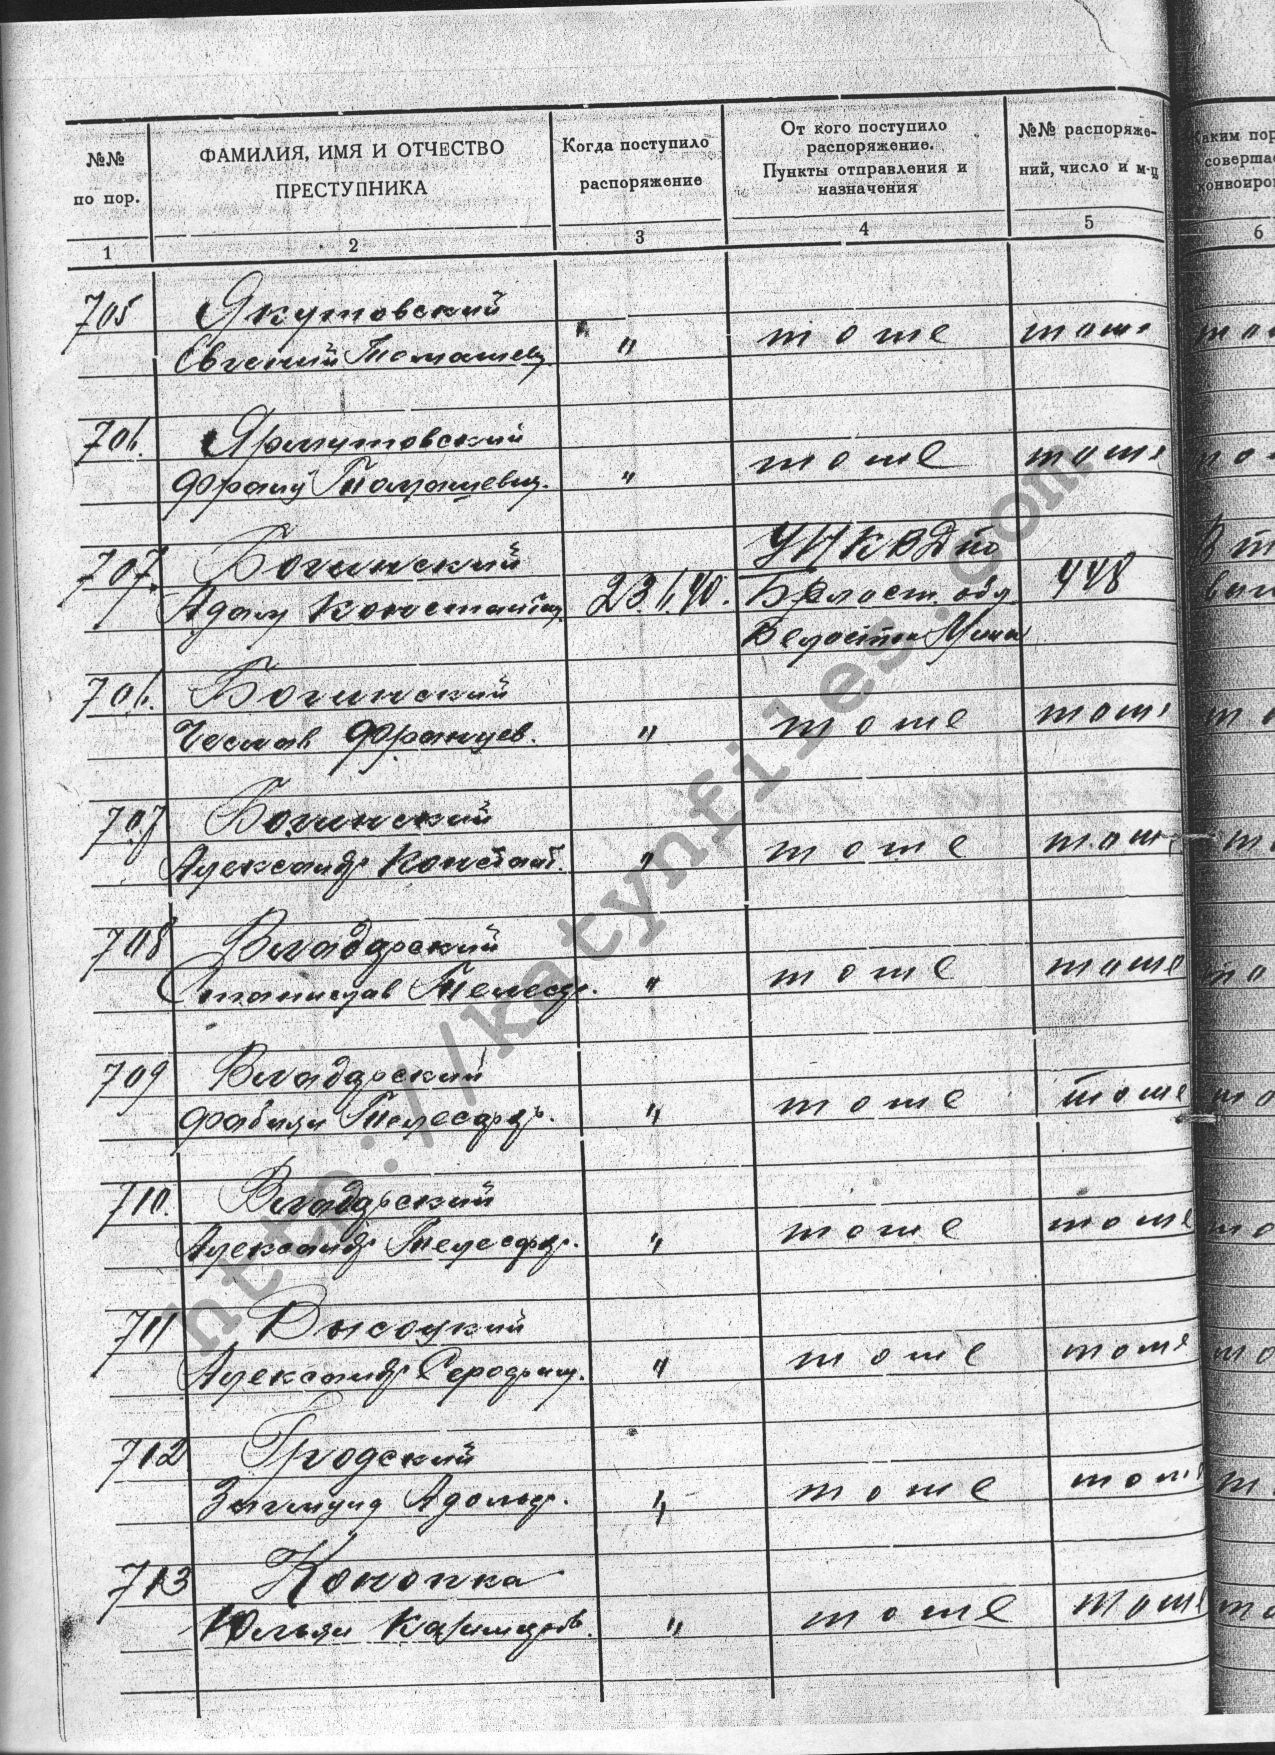 №№ по пор.
ФАМИЛИЯ, ИМЯ И ОТЧЕСТВО ПРЕСТУПНИКА
Когда поступило распоряжение
От кого поступило распоряжение. Пункты отправления и назначения
№№ распоряже-
ний, число и м-ц
Каким пор
совершае
конвоиров
1 2 3 4 5 6
705 Якутовский
Евгений Томашев. " тоже тоже
706. Ярмутовский
Франц Томашевич. " тоже тоже
707. Богинский УНКВД по
Адам Константин. 23.1.40. Белост. обл. 448
Белосток Минск
706. Богинский
Чеслав Францев. " тоже тоже
707 Богинский
Александр Констант. " тоже тоже
708 Владарский
Станислав Телесф. " тоже тоже
709 Владарский
Фабиян Телесфор. " тоже тоже
710. Владарский
Александр Телесфор. " тоже тоже
711 Высоцкий
Александр " тоже тоже
712 Гродский
Зыгмунд Адольф. " тоже тоже
713 Конопка
Юльян Казимиров. " тоже тоже
http://katynfiles.com